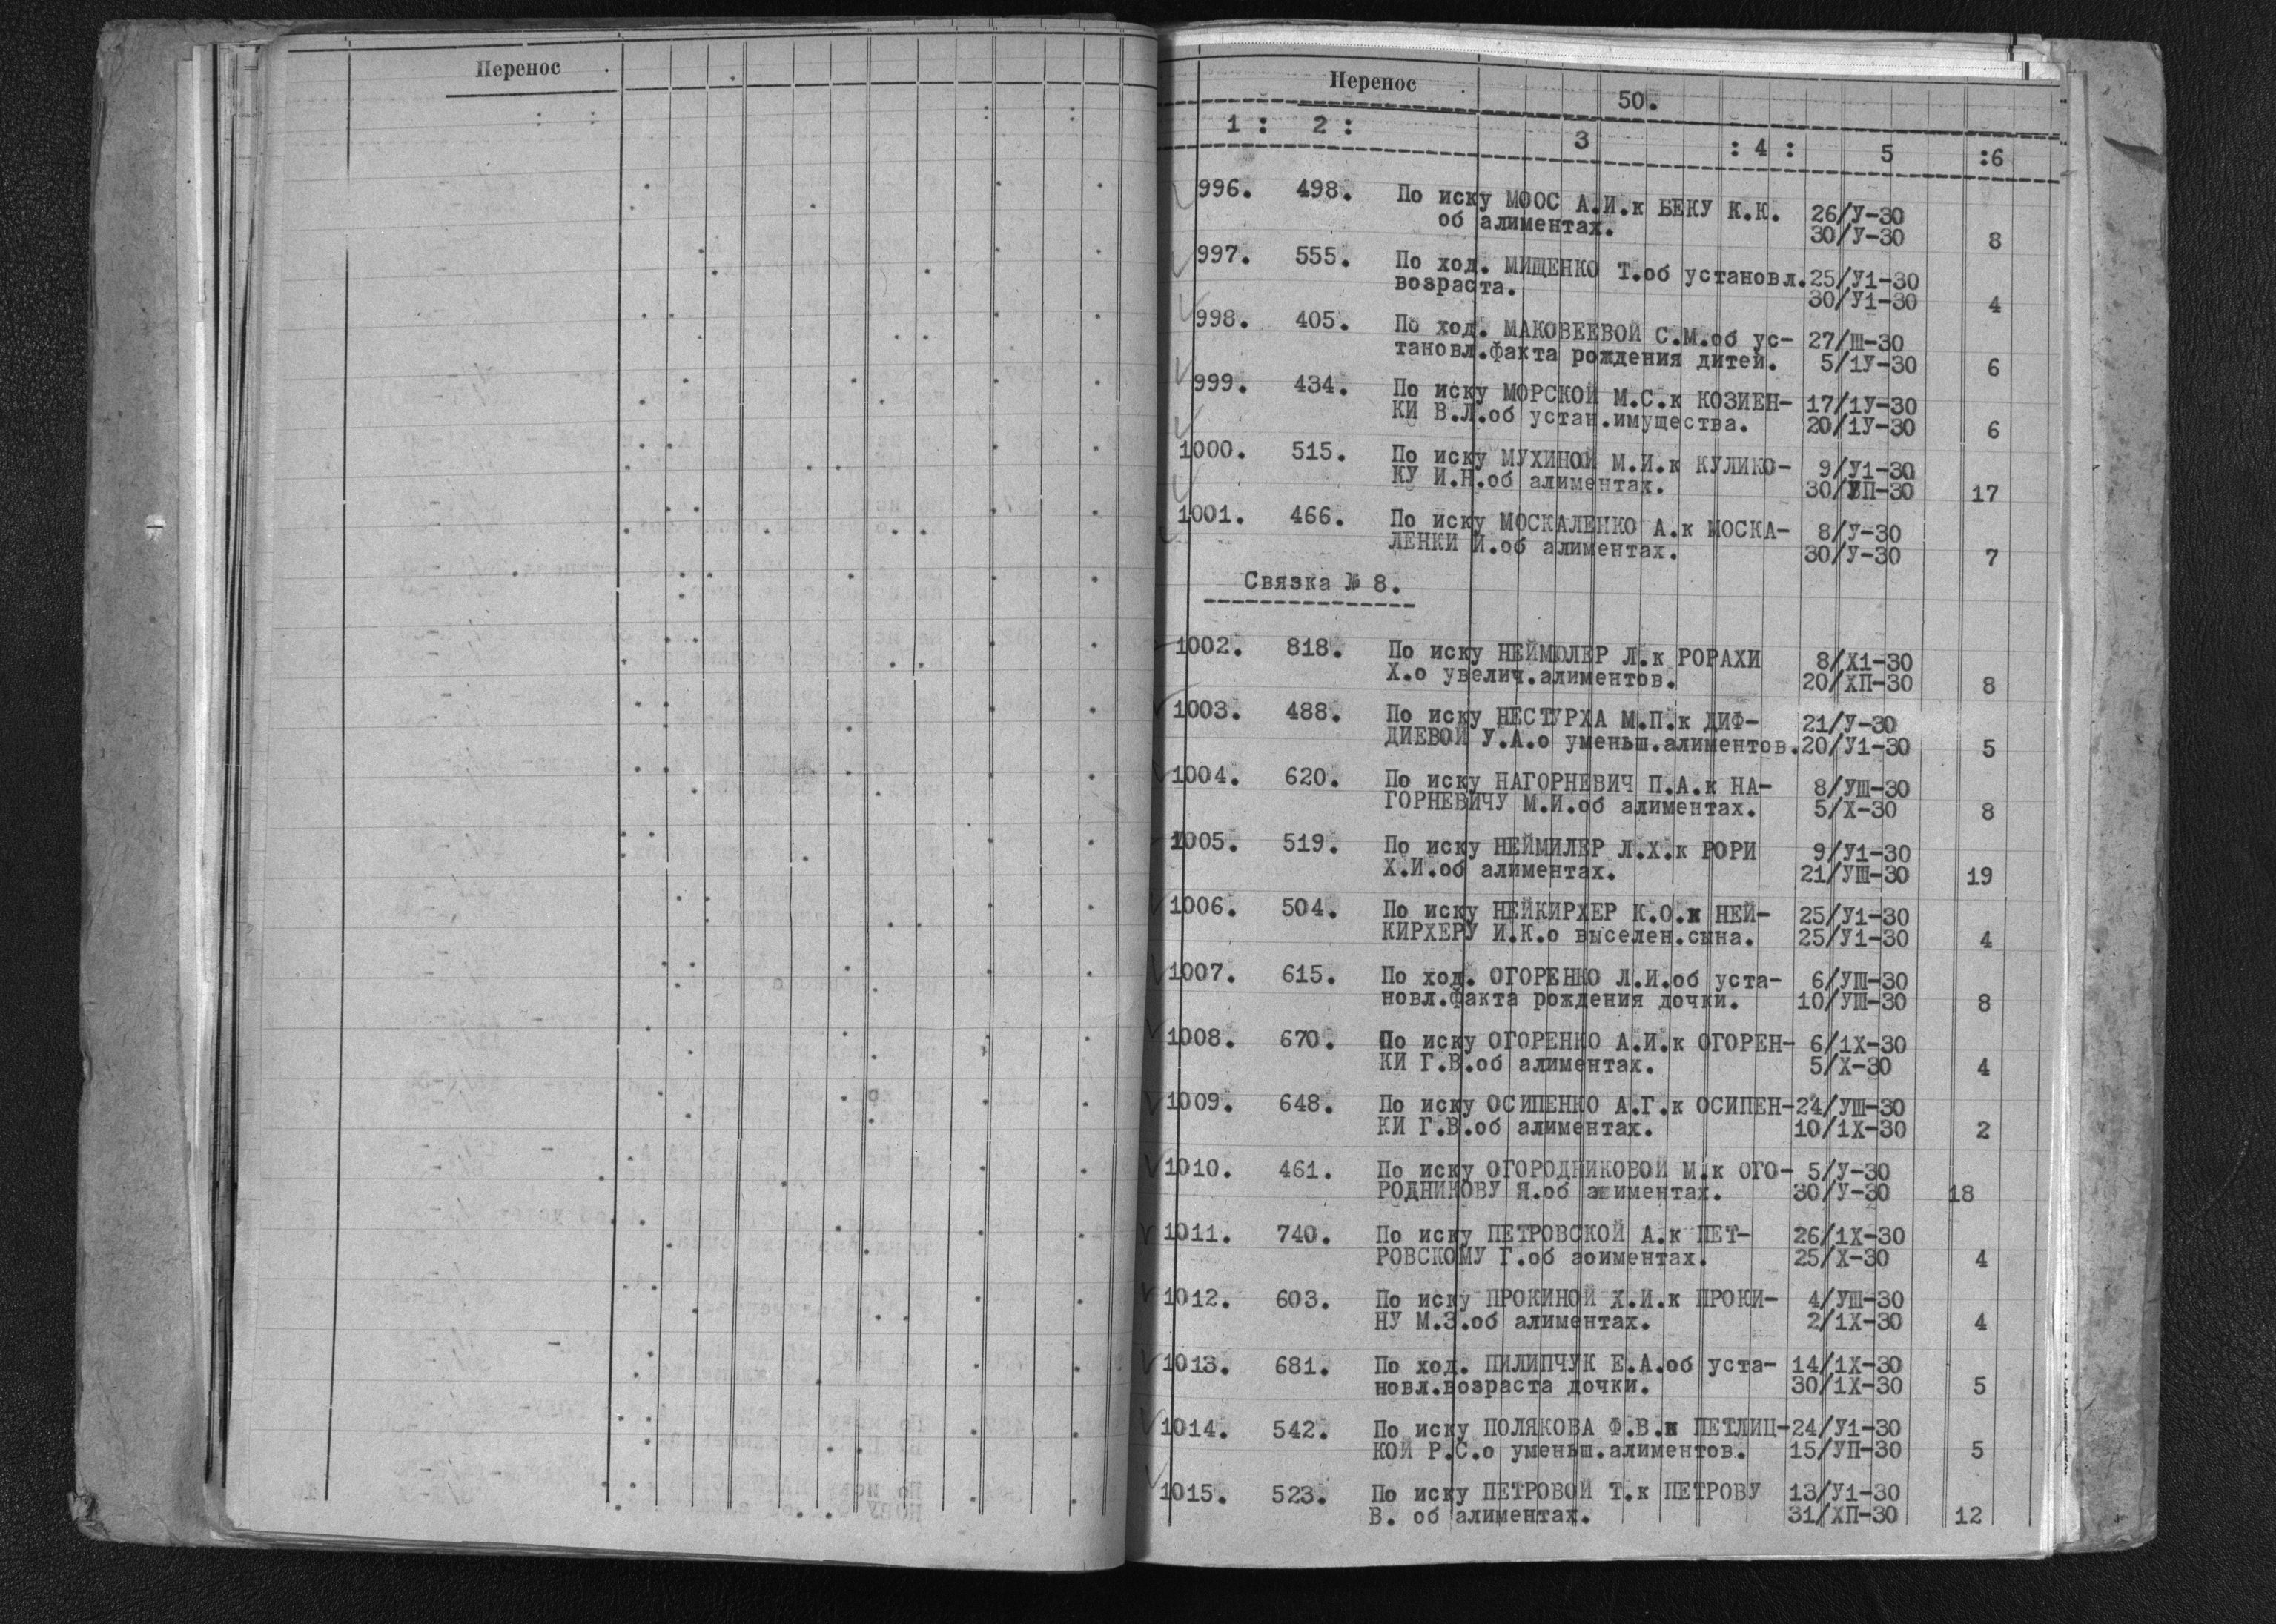 Перенос
Перенос
50.
1 : 2 : 3 : 4 : 5 :6
996. 498. По иску МООС А.И.к БЕКУ К.К. 26/У-30
об алиментах. 30/У-30 8
997. 555. По ход. МИЩЕНКО Т.об установл.25/У1-30
возраста. 30/У1-30 4
998. 405. По ход. МАКОВЕЕВОЙ С.М.об ус- 27/Ш-30
тановл.факта рождения дитей. 5/1У-30 6
999. 434. По иску МОРСКОЙ М.С.к КОЗИЕН- 17/1У-30
КИ В.Л.об устан.имущества. 20/1У-30 6
1000. 515. По иску МУХИНОЙ М.И.к КУЛИКО- 9/У1-30
КУ И.Н.об алиментах. 30/УП-30 17
1001. 466. По иску МОСКАЛЕНКО А.к МОСКА- 8/У-30
ЛЕНКИ И.об алиментах. 30/У-30 7
Связка № 8.
1002. 818. По иску НЕЙМОЛЕР Л.к РОРАХИ 8/Х1-30
Х.о увелич.алиментов. 20/ХП-30 8
1003. 488. По иску НЕСТУРХА М.П.к ДИФ- 21/У-30
ДИЕВОЙ У.А.о уменьш.алиментов.20/У1-30 5
1004. 620. По иску НАГОРНЕВИЧ П.А.к НА- 8/УШ-30
ГОРНЕВИЧУ М.И.об алиментах. 5/Х-30 8
1005. 519. По иску НЕЙМИЛЕР Л.Х.к РОРИ 9/У1-30
Х.И.об алиментах. 21/УШ-30 19
1006. 504. По иску НЕЙКИРХЕР К.О.к НЕЙ- 25/У1-30
КИРХЕРУ И.К.о выселен.сына. 25/У1-30 4
1007. 615. По ход. ОГОРЕНКО Л.И.об уста- 6/УШ-30
новл.факта рождения дочки. 10/УШ-30 8
1008. 670. По иску ОГОРЕНКО А.И.к ОГОРЕН- 6/1Х-30
КИ Г.В.об алиментах. 5/Х-30 4
1009. 648. По иску ОСИПЕНКО А.Г.к ОСИПЕН-24/УШ-30
КИ Г.В.об алиментах. 10/1Х-30 2
1010. 461. По иску ОГОРОДНИКОВОЙ М.к ОГО- 5/У-30
РОДНИКОВУ Я.об алиментах. 30/У-30 18
1011. 740. По иску ПЕТРОВСКОЙ А.к ПЕТ- 26/1Х-30
РОВСКОМУ Г.об аоиментах. 25/Х-30 4
1012. 603. По иску ПРОКИНОЙ Х.И.к ПРОКИ- 4/УШ-30
НУ М.З.об алиментах. 2/1Х-30 4
1013. 681. По ход. ПИЛИПЧУК Е.А.об уста- 14/1Х-30
новл.возраста дочки. 30/1Х-30 5
1014. 542. По иску ПОЛЯКОВА Ф.В.к ПЕТЛИЦ-24/У1-30
КОЙ Р.С.о уменьш.алиментов. 15/УП-30 5
1015. 523. По иску ПЕТРОВОЙ Т.к ПЕТРОВУ 13/У1-30
В. об алиментах. 31/ХП-30 12